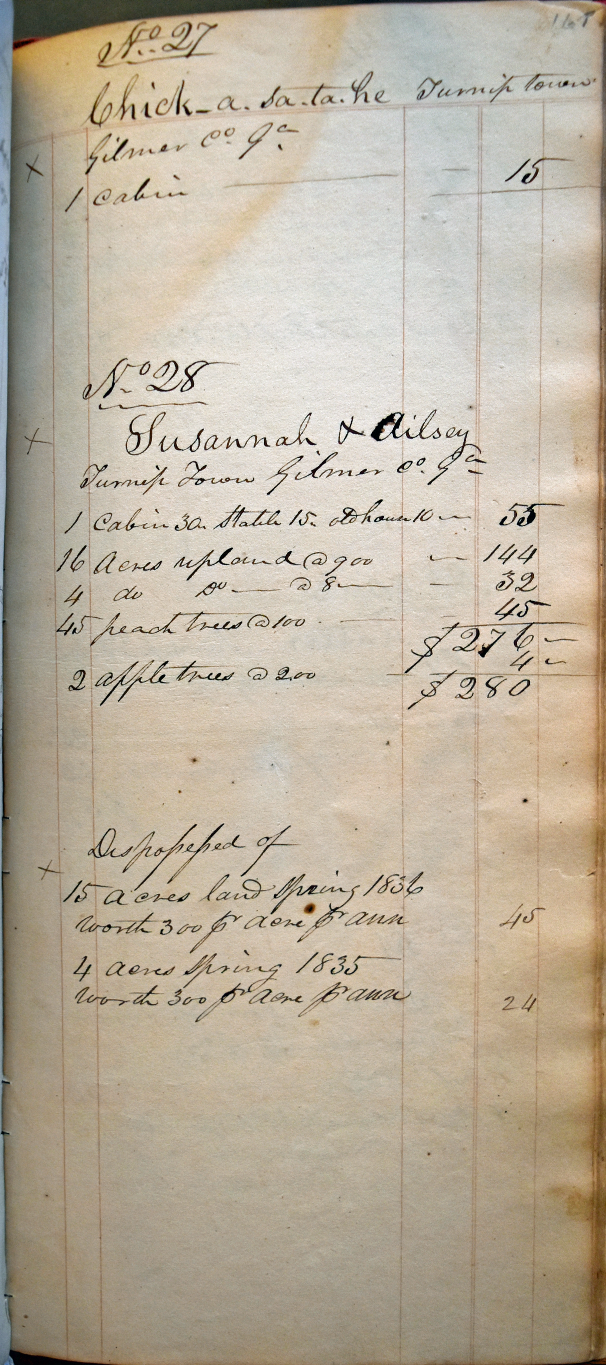 No. 27
Chick-a-sa-ta-he Turnip town
Gilmer Co Ga
x
1 cabin — 15
No 28
x Susannah & Ailsey
Turnip Town Gilmer Co. Ga
1 Cabin 30. Stable 15. old house 10 — 55
16 Acres upland @ 900 — 144
4 do Do — @ 8 — — 32
45 peach trees @ 100 — 45
$ 276 —
2 apple trees @ 200 4 —
$ 280
Dispossessed of
x
15 acres land Spring 1836
worth 300 pr acre pr ann 45
4 acres Spring 1835
worth 300 pr acre pr ann 24